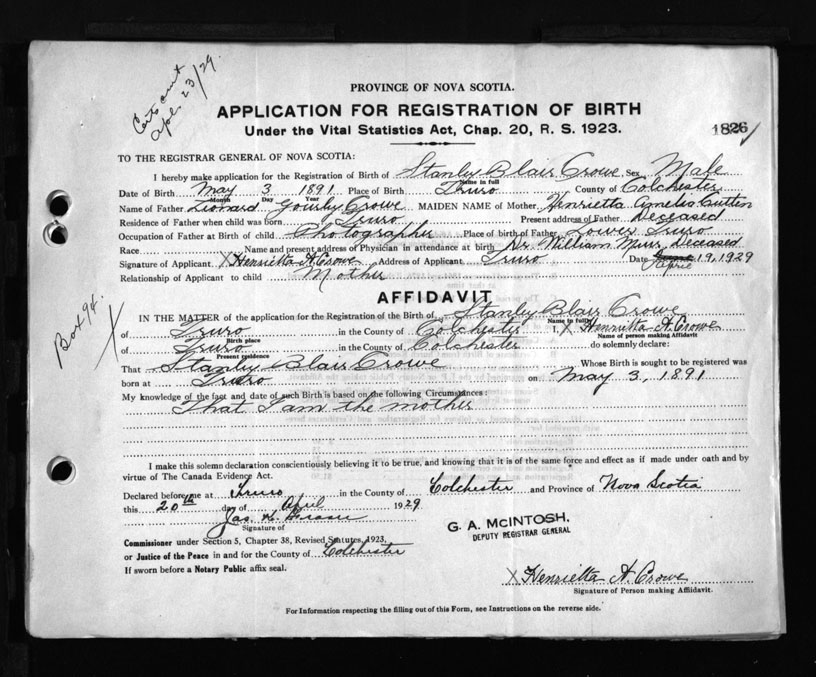 Certs sent
Apl. 23/29
PROVINCE OF NOVA SCOTIA.
APPLICATION FOR REGISTRATION OF BIRTH
Under the Vital Statistics Act, Chap. 20, R. S. 1923.
1826
TO THE REGISTRAR GENERAL OF NOVA SCOTIA:
I hereby make application for the Registration of Birth of Stanly Blair Crowe Sex Male
Name in full
Date of Birth May 3 1891 Place of Birth Truro County of Colchester
Month Day Year
Name of Father Leonard Gourley Crowe MAIDEN NAME of Mother Henrietta Amelia Cutten
Residence of Father when child was born Truro Present address of Father Deceased
Occupation of Father at Birth of child Photographer Place of birth of Father Lower Truro
Race Name and present address of Physician in attendance at birth Dr. William Muir, Deceased
Signature of Applicant X Henrietta A. Crowe Address of Applicant Truro Date April 19, 1929
Relationship of Applicant to child Mother
AFFIDAVIT
IN THE MATTER of the application for the Registration of the Birth of Stanly Blair Crowe
Name in full
of Truro in the County of Colchester I, X Henrietta A. Crowe
Birth place Name of person making Affidavit
of Truro in the County of Colchester do solemnly declare:
Present residence
That Stanly Blair Crowe Whose Birth is sought to be registered was
born at Truro on May 3, 1891
My knowledge of the fact and date of such Birth is based on the following Circumstances:
That I am the mother
Box 94.
X
I make this solemn declaration conscientiously believing it to be true, and knowing that it is of the same force and effect as if made under oath and by
virtue of The Canada Evidence Act.
Declared before me at Truro in the County of Colchester and Province of Nova Scotia
this 20th day of April 1929
Jas. A. Fraser
Signature of
G. A. McINTOSH,
DEPUTY REGISTRAR GENERAL
Commissioner under Section 5, Chapter 38, Revised Statutes, 1923,
or Justice of the Peace in and for the County of Colchester
If sworn before a Notary Public affix seal.
X Henrietta A. Crowe
Signature of Person making Affidavit.
For Information respecting the filling out of this Form, see Instructions on the reverse side.